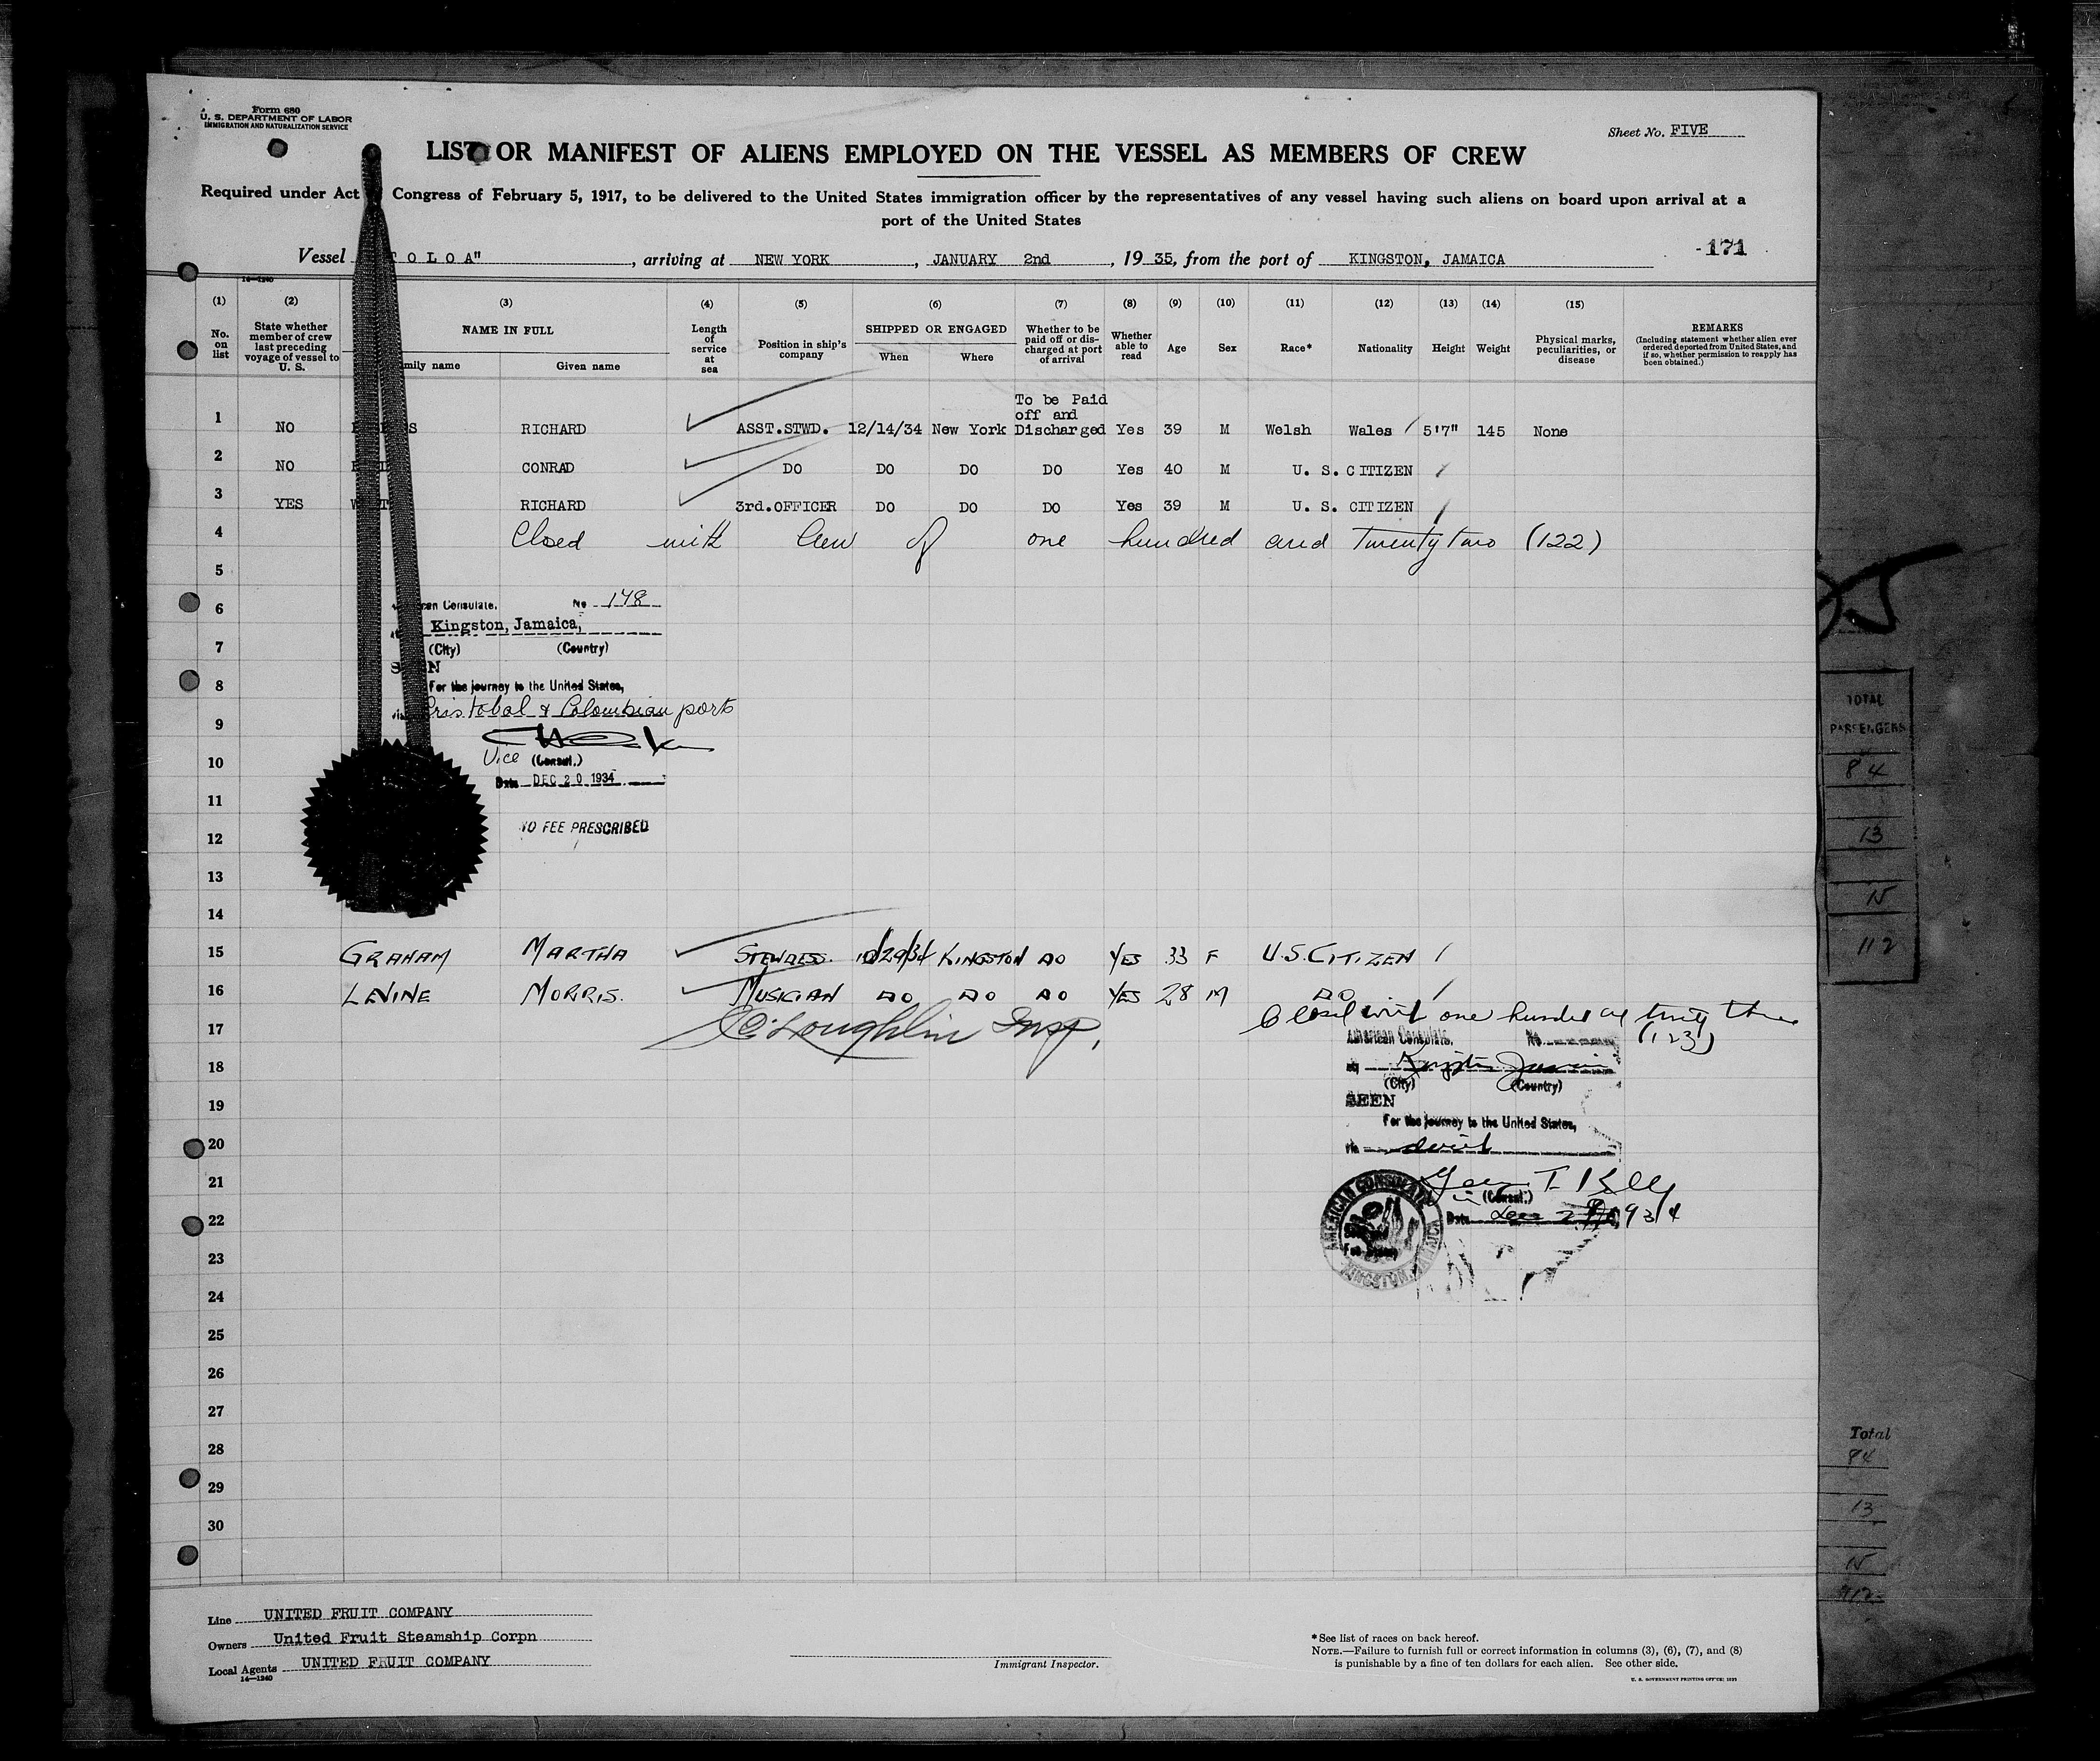 Form 680
U. S. DEPARTMENT OF LABOR
IMMIGRATION AND NATURALIZATION SERVICE
Sheet No. FIVE
LIST OR MANIFEST OF ALIENS EMPLOYED ON THE VESSEL AS MEMBERS OF CREW
Required under Act Congress of February 5, 1917, to be delivered to the United States immigration officer by the representatives of any vessel having such aliens on board upon arrival at a
port of the United States
171
Vessel TOLOA", arriving at NEW YORK, JANUARY 2nd, 19 35, from the port of KINGSTON, JAMAICA
14—1240
(1) (2) (3) (4) (5) (6) (7) (8) (9) (10) (11) (12) (13) (14) (15)
No. on list
State whether member of crew last preceding voyage of vessel to U. S.
NAME IN FULL
mily name Given name
Length of service at sea
Position in ship's company
SHIPPED OR ENGAGED
When Where
Whether to be paid off or discharged at port of arrival
Whether able to read
Age
Sex
Race*
Nationality
Height
Weight
Physical marks, peculiarities, or disease
REMARKS
(Including statement whether alien ever ordered deported from United States, and if so, whether permission to reapply has been obtained.)
1 NO RICHARD ASST.STWD. 12/14/34 New York To be Paid off and Discharged Yes 39 M Welsh Wales 5'7" 145 None
2 NO CONRAD DO DO DO DO Yes 40 M U. S. CITIZEN
3 YES RICHARD 3rd.OFFICER DO DO DO Yes 39 M U. S. CITIZEN
4 Closed with Crew of one hundred and Twenty two (122)
5
6 can Consulate. No 148
Kingston, Jamaica,
7 (City) (Country)
SEEN
8 For the journey to the United States,
9 Cristobal & Colombian ports
10 Vice (Consul.)
Date DEC 20 1934
11
12 NO FEE PRESCRIBED
13
14
15 GRAHAM MARTHA STEWDESS. 12/29/34 KINGSTON DO YES 33 F U.S. CITIZEN
16 LEVINE MORRIS. MUSICIAN DO DO DO YES 28 M DO
17 O'Loughlin Insp. Closed with one hundred twenty three
(123)
American Consulate, No.
18 at Kingston Jamaica
(City) (Country)
19 SEEN
For the journey to the United States,
20 via direct
21 (Consul.)
22 Date Dec 1934
AMERICAN CONSULATE
KINGSTON, JAMAICA
23
24
25
26
27
28
29
30
Line UNITED FRUIT COMPANY
Owners United Fruit Steamship Corpn
Local Agents UNITED FRUIT COMPANY
14—1240
Immigrant Inspector.
*See list of races on back hereof.
NOTE.—Failure to furnish full or correct information in columns (3), (6), (7), and (8)
is punishable by a fine of ten dollars for each alien. See other side.
U. S. GOVERNMENT PRINTING OFFICE
TOTAL
PASSENGERS
84
13
15
112
Total
84
13
15